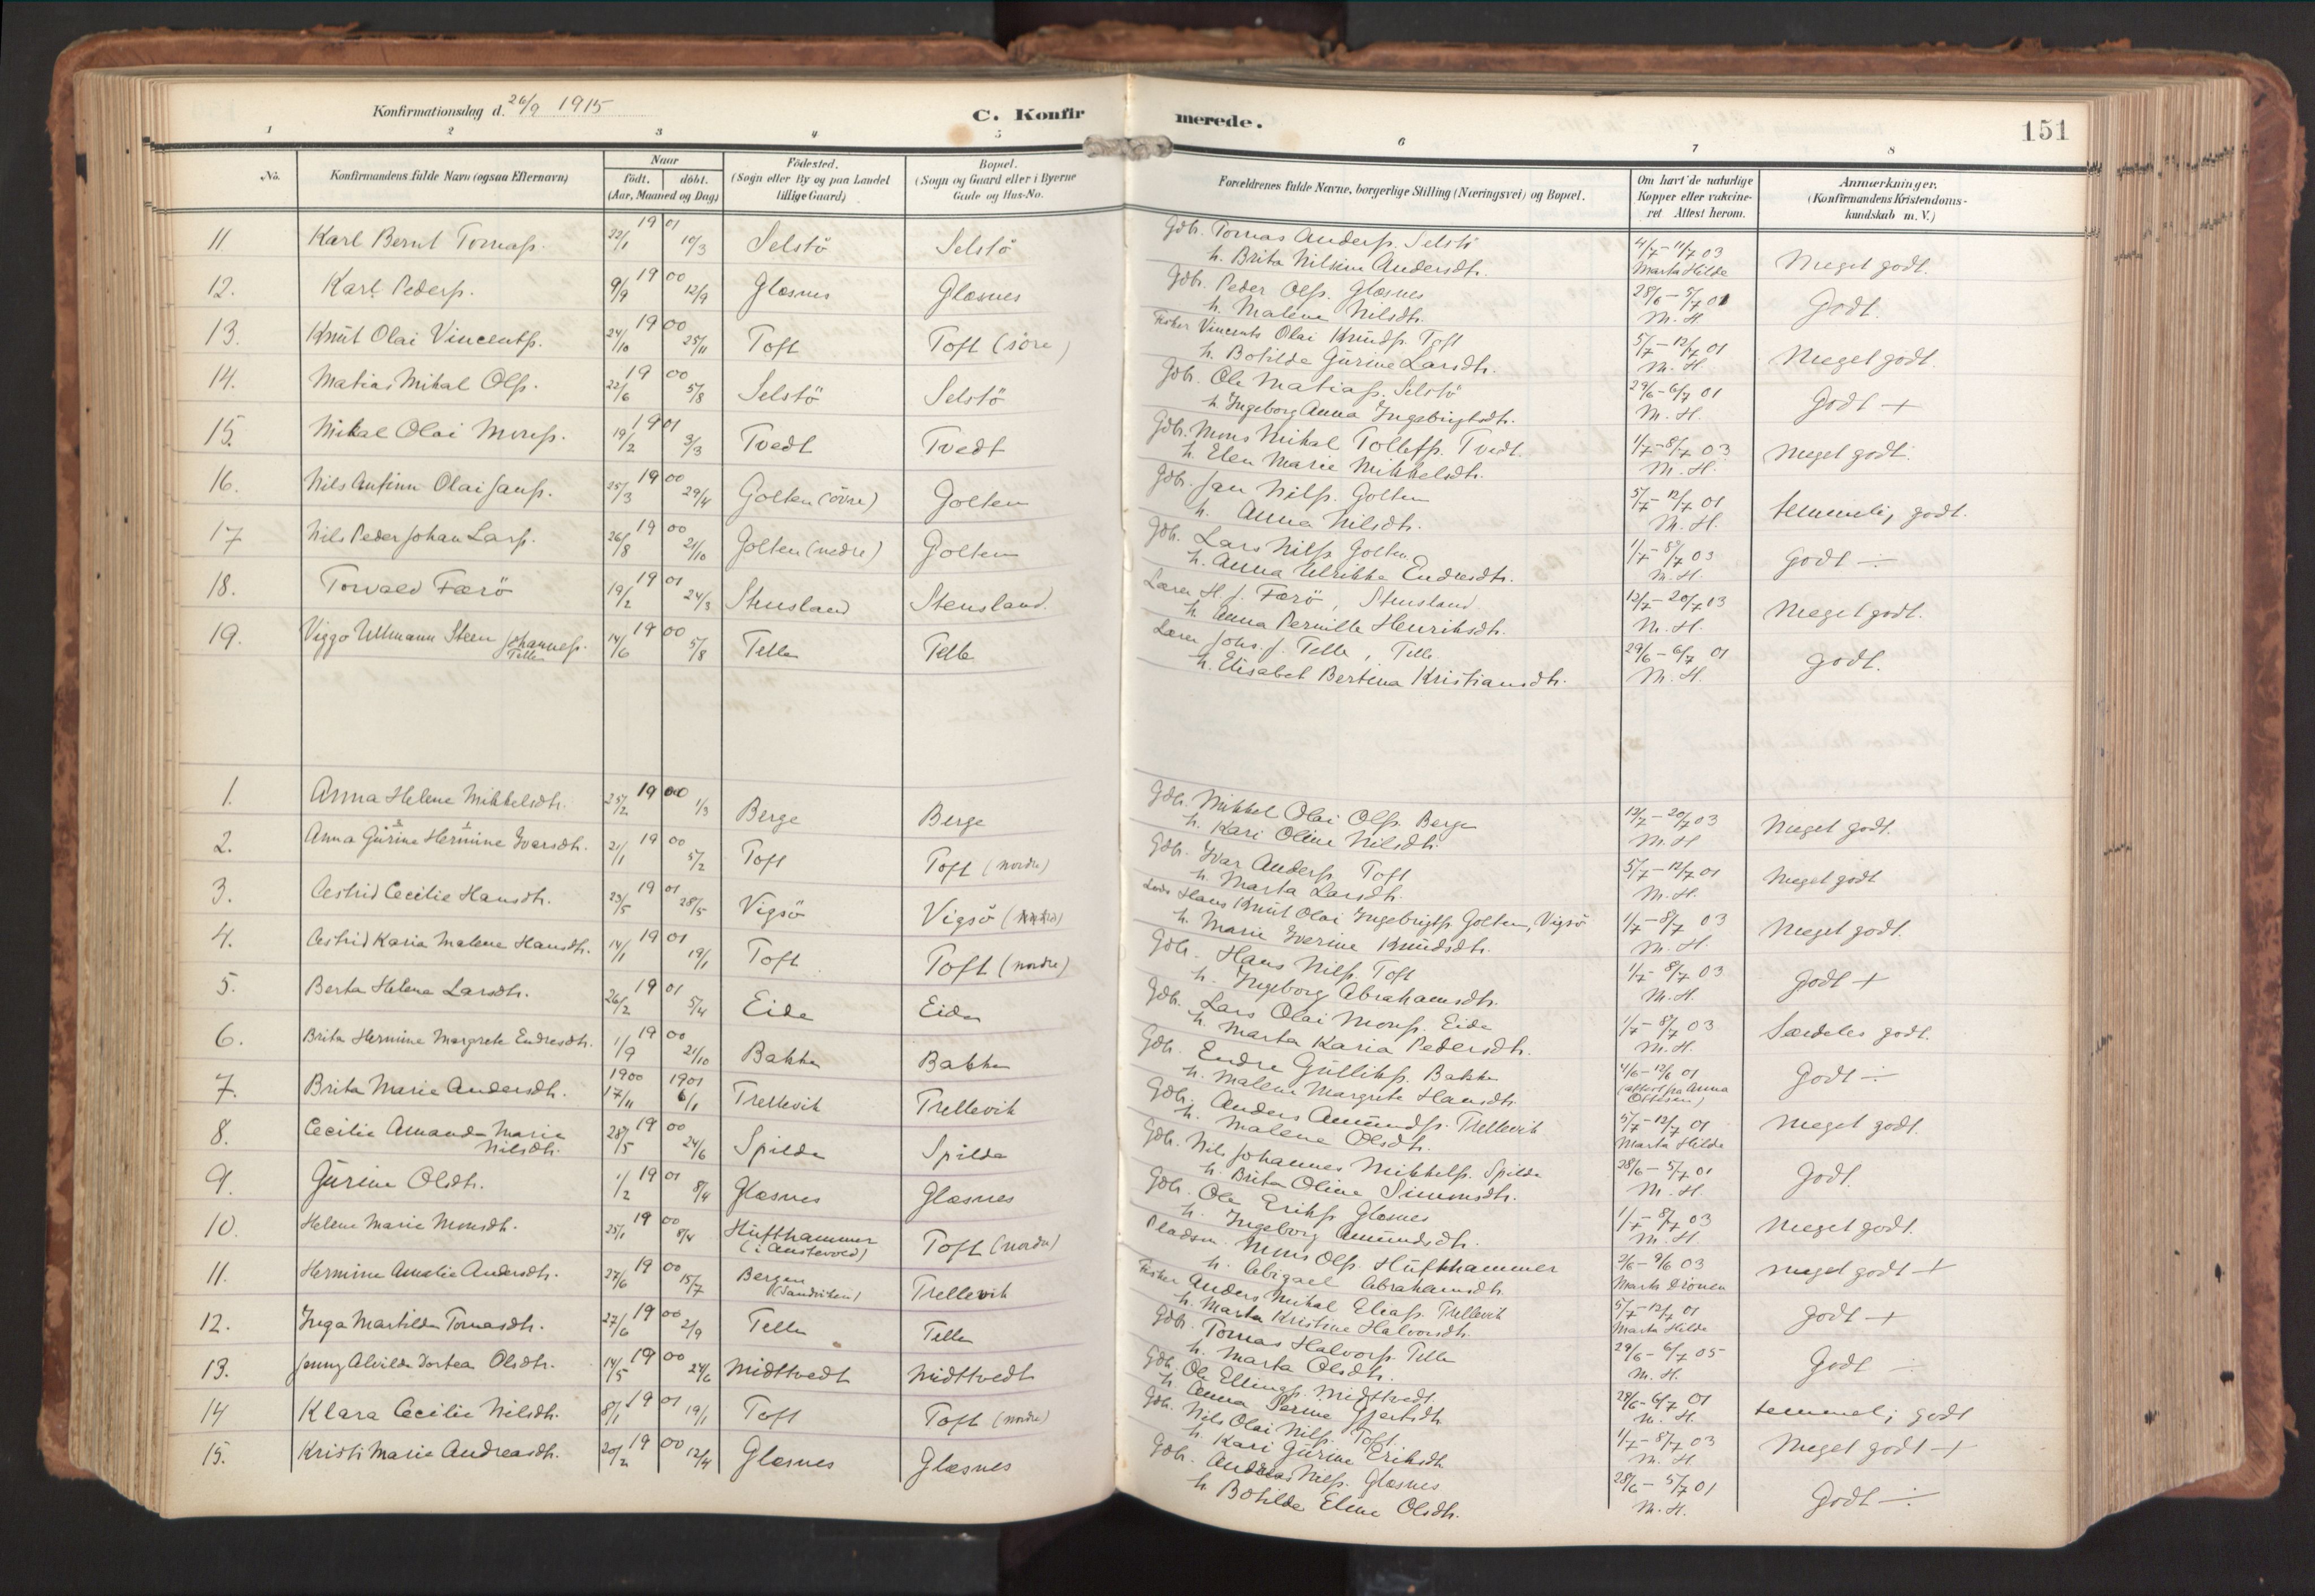 Konfirmationsdag d. 26/9 1915
C. Konfirmerede.
151
1 2 3 4 5 6 7 8
No.
Konfirmandens fulde Navn (ogsaa Efternavn)
Naar
født. døbt.
(Aar, Maaned og Dag)
Fødested.
(Sogn eller By og paa Landet
tillige Gaard)
Bopæl.
(Sogn og Gaard eller i Byerne
Gade og Hus-No.
Forældrenes fulde Navne, borgerlige Stilling (Næringsvei) og Bopæl.
Om havt de naturlige
Kopper eller vakcine-
ret Attest herom.
Anmærkninger.
(Konfirmandens Kristendoms-
kundskab m. V.)
11. Karl Bernt Tomass. 22/1 1901 10/3 Selstö Selstö Gdb. Tomas Anderss. Selstö 4/7-11/7 03 Meget godt.
h. Brita Nilsine Andersdtr. Marta Hilde
12. Karl Peders. 9/9 1900 12/9 Glæsnes Glæsnes Gdb. Peder Olss. Glæsnes 28/6-5/7 01 Godt.
h. Malene Nilsdtr. M. H.
13. Knüt Olai Vincents. 24/10 1900 25/11 Toft Toft (söre) Fisker Vincents Olai Knüds. Toft 5/7-12/7 01 Meget godt.
h. Botilde Gürine Larsdtr. M. H.
14. Matias Mikal Ols. 22/6 1900 5/8 Selstö Selstö Gdb. Ole Matiass. Selstö 29/6-6/7 01 Godt +
h. Ingeborg Anna Ingebrigtsdtr. M. H.
15. Mikal Olai Monss. 19/2 1901 3/3 Tvedt Tvedt Gdb. Mons Mikal Tollefs. Tvedt 1/7-8/7 03 Meget godt.
h. Elen Marie Mikkelsdtr. M. H.
16. Nils Anfinn Olai Janss. 25/3 1900 29/4 Golten (övre) Golten Gdb. Jan Nilss. Golten 5/7-12/7 01 temmelig godt.
h. Anna Nilsdtr. M. H.
17 Nils Peder Johan Larss. 26/8 1900 21/10 Golten (nedre) Golten Gdb. Lars Nilss. Golten 1/7-8/7 03 Godt ÷
h. Anna Ulrikke Endresdtr. M. H.
18. Torvald Færö 19/2 1901 24/3 Stensland Stensland. Lærer H. J. Færö, Stensland 12/7-20/7 03 Meget godt.
h. Anna Pernille Henriksdtr. M. H.
19. Viggo Ullmann Steen Johanness. Telle 14/6 1900 5/8 Telle Telle Lærer Johs. J. Telle, Telle 29/6-6/7 01 Godt.
h. Elisabet Bertina Kristiansdtr. M. H.
1. Anna Helene Mikkelsdtr. 25/2 1900 1/3 Berge Berge Gdb. Mikkel Olai Olss. Berge 13/7-20/7 03 Meget godt.
h. Kari Oline Nilsdtr. M. H.
2. Anna Gürine Hermine Iversdtr. 21/1 1900 5/2 Toft Toft (nordre) Gdb. Ivar Anderss. Toft 5/7-12/7 01 Meget godt
h. Marta Larsdtr. M. H.
3. Astrid Cecilie Hansdtr. 23/5 1901 28/5 Vigsö Vigsö Hans Knüt Olai Ingebrigts. Golten, Vigsö 1/7-8/7 03 Meget godt.
h. Marie Iverine Knüdsdtr. M. H.
4. Astrid Karia Malene Hansdtr. 14/1 1901 19/1 Toft Toft (nordre) Gdb. Hans Nilss. Toft 1/7-8/7 03 Godt +
h. Ingeborg Abrahamsdtr. M. H.
5. Berta Helena Larsdtr. 26/2 1901 5/4 Eide Eide Gdb. Lars Olai Monss. Eide 1/7-8/7 03 Særdeles godt.
h. Marta Karia Pedersdtr. M. H.
6. Brita Hermine Margrete Endresdtr. 1/9 1900 21/10 Bakken Bakken Gdb. Endre Gülliks. Bakken 4/6-12/6 01 Godt ÷
h. Malene Margrete Hansdtr. (attest fra Anna Ottesen)
7. Brita Marie Andersdtr. 1900 17/11 1901 6/1 Trellevik Trellevik Gdb. Anders Amünds. Trellevik 5/7-12/7 01 Meget godt.
h. Malene Olsdtr. Marta Hilde
8. Cecilie Amanda Marie Nilsdtr. 28/5 1900 24/6 Spilde Spilde Gdb. Nils Johannes Mikkels. Spilde 28/6-5/7 01 Godt.
h. Brita Oline Simonsdtr. M. H.
9. Gürine Olsdtr. 1/2 1901 8/4 Glæsnes Glæsnes Gdb. Ole Eriks. Glæsnes 1/7-8/7 03 Meget godt.
h. Ingeborg Amündsdtr. M. H.
10. Helene Marie Monsdtr. 25/1 1900 8/4 Hüfthammer (i Austevold) Toft (nordre) Pladsm. Mons Olss. Hüfthammer 2/6-9/6 03 meget godt +
h. Abigael Abrahamsdtr. Marta Drönen
11. Hermine Amalie Andersdtr. 27/6 1900 15/7 Bergen (Sandviken) Trellevik Fisker Anders Mikal Eliass. Trellevik 5/7-12/7 01 Godt +
h. Marta Kristine Halvorsdtr. Marta Hilde
12. Inga Martilda Tomasdtr. 27/6 1900 2/9 Telle Telle Gdb. Tomas Halvors. Telle 29/6-6/7 05 Godt ÷
h. Marta Olsdtr. M. H.
13. Jenny Alvilde Dortea Olsdtr. 14/5 1900 24/6 Midttvedt Midttvedt Gdb. Ole Ellings. Midttvedt 29/6-6/7 01 temmelig godt
h. Anna Serine Gjertsdtr. M. H.
14 Klara Cecilie Nilsdtr. 8/1 1901 19/1 Toft Toft (nordre) Gdb. Nils Olai Nilss. Toft 1/7-8/7 03 Meget godt +
h. Kari Gürine Eriksdtr. M. H.
15. Kristi Marie Andreasdtr. 20/2 1900 12/4 Glæsnes Glæsnes Gdb. Andreas Nilss. Glæsnes 28/6-5/7 01 Godt ÷
h. Botilde Eline Olsdtr. M. H.